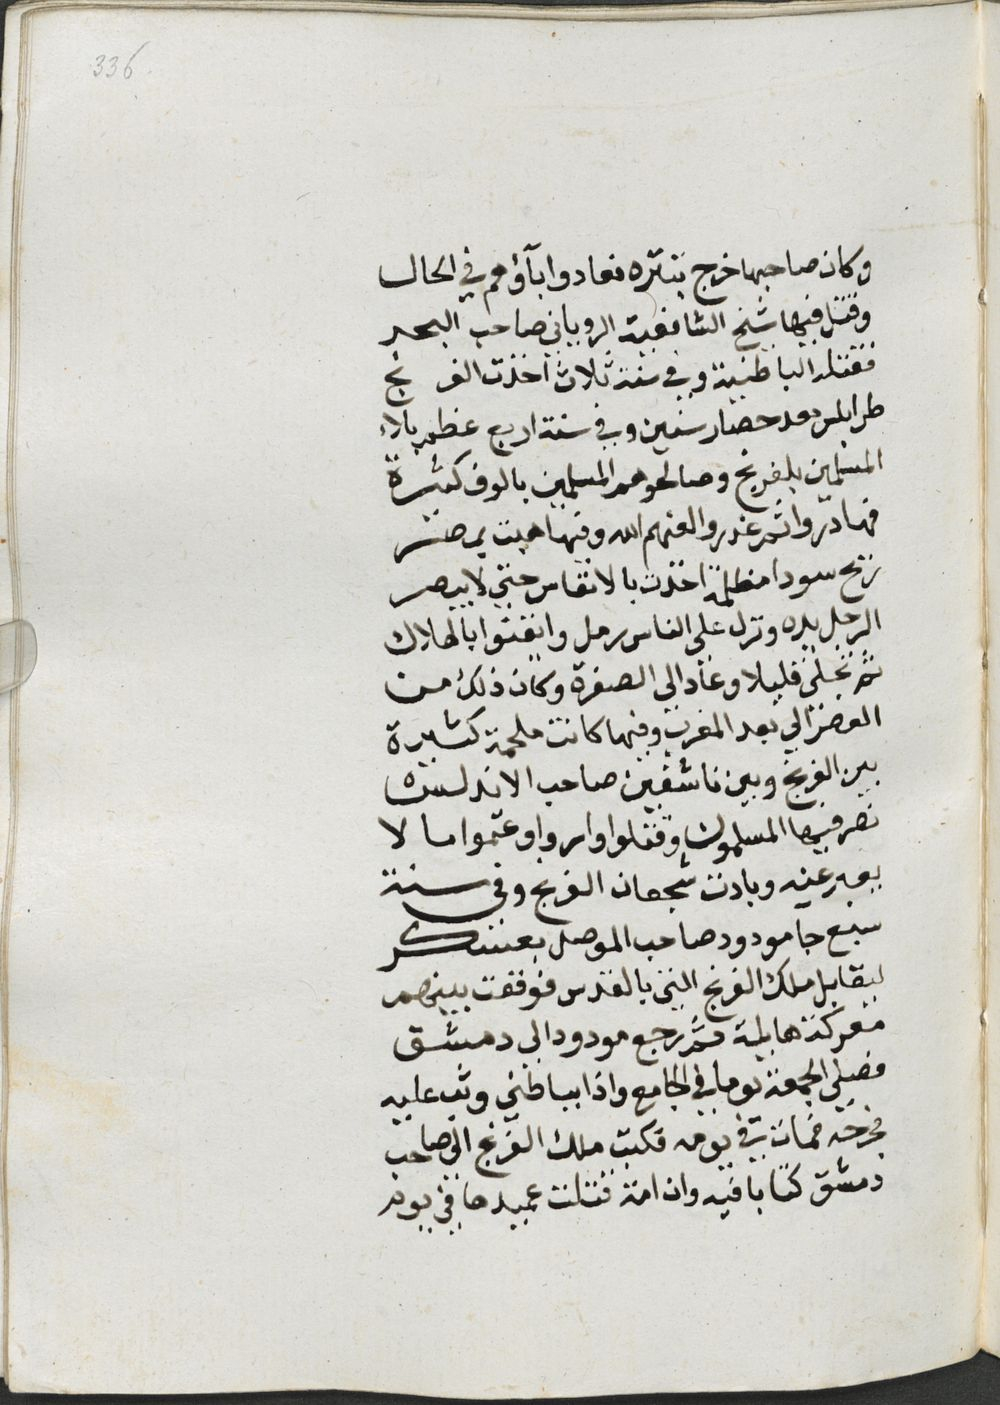 336
وكان صاحبها خرج يتنزه فعادوا باؤهم في الحال
وقتل فيها شيخ الشافعية الروياني صاحب البحر
فقتله الباطنية وفي سنة ثلاث اخذت الفرنج
طرابلس بعد حصار سنين وفي سنة اربع عظم بلاء
المسلمين بلفرنج وصالحوهم المسلمين بالوف كثيرة
فهادروا ثم غدروا لعنهم الله وفيها هبت بمصر
ريح سودا مظلمة اخذت بالانفاس حتى لا يبصر
الرجل يده ونزل على الناس رمل وايقنوا بالهلاك
ثم تجلى قليلا وعاد الى الصفرة وكان ذلك من
العصر الى بعد المغرب وفيها كانت ملحمة كبيرة
بين الفرنج وبين تاشفين صاحب الاندلس
نصر فيها المسلمون وقتلوا واسروا وغنموا ما لا
يعبر عنه وبادت شجعان الفرنج وفي سنة
سبع جا مودود صاحب الموصل بعسكر
ليقابل ملك الفرنج الذي بالقدس فوقعت بينهم
معركة هايلة ثم رجع مودود الى دمشق
فصلى الجمعة يوما في الجامع واذا بباطني وثب عليه
فجرحه فمات في يومه فكتب ملك الفرنج الى صاحب
دمشق كتابا فيه وان امة قتلت عميدها في يوم